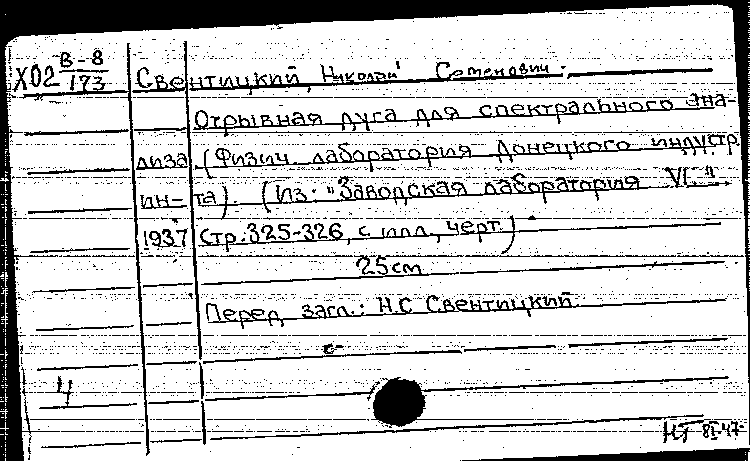 Х02 В-8/173 Свентицкий, Николай Семенович.
Отрывная дуга для спектрального ана-
лиза (Физич. лаборатория Донецкого индустр
ин-та). (Из: "Заводская лаборатория VI."
1937 стр. 325-326, с илл., черт.)
25 cm
Перед загл.: Н.С Свентицкий.
4